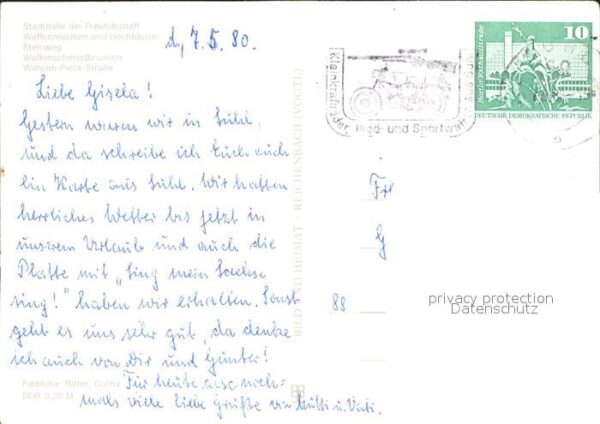 Stadthalle der Freundschaft
Waffenmuseum und Hochhäuser
Steinweg
Waffenschmiedbrunnen
Wilhelm-Pieck-Straße
d, 7.5.80.
Liebe Gisela!
Gestern waren wir in Suhl,
und da schreibe ich Euch auch
ein Karte aus Suhl. Wir hatten
herrliches Wetter bis jetzt in
unserem Urlaub und auch die
Platte mit „Sing mein Sachse
sing!" haben wir erhalten. Sonst
geht es uns sehr gut, da denke
ich auch von Dir und Günter!
Für heute also noch=
mals viele liebe Grüße von Mutti u. Vati.
Farbfoto: Ritter, Gotha
DDR 0,20 M
BILD UND HEIMAT · REICHENBACH
Kleinkrafträder, Jagd- und Sportwaffen
10
DEUTSCHE DEMOKRATISCHE REPUBLIK
Frl
G
88
privacy protection
Datenschutz